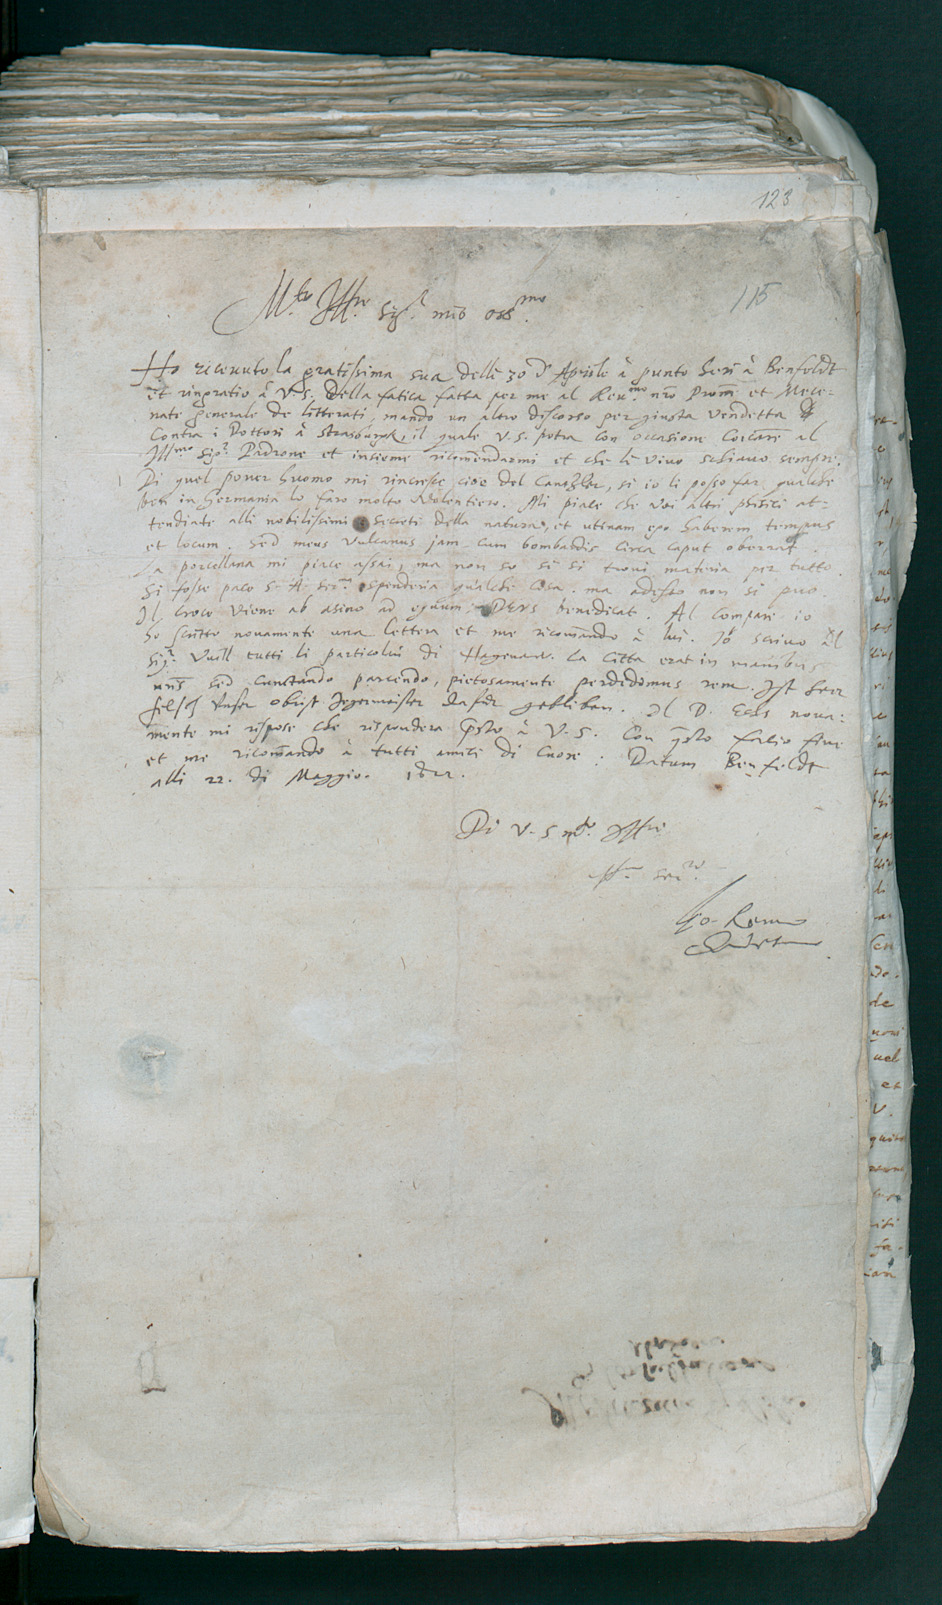 123
115
M.to Ill.re Sig.r mio oss.mo
Ho ricevuto la gratissima sua delli 30 d' Aprile à punto heri à Benfeldt
et ringratio à V. S. della fatica fatta per me al Rev.mo nro Prone et Mece-
nate generale de litterati, mando un altro discorso per giusta vendetta
Contra i Dottori à Strasburgk, il quale V. S. potra con occasione al
Ill.mo Sig.r Padrone et insieme ricomendarmi et che le vivo schiavo sempre.
Di quel pover huomo mi rincresce cioe del Cantzler, si io li posso far qualche
ben in Germania lo faro molto volentiero. Mi piace che voi altri phisici at-
tendiate alli nobilissimi secreti della natura, et utinam ego haberem tempus
et locum. Sed meus Vulcanus jam cum bombardis circa caput oberrat.
La porcellana mi piace assai, ma non so se si trovi materia per tutto.
Si fosse pace S. A. Ser.ma spenderia qualche cosa. ma adesso non si puo.
Il Croce viene ab asino ad equum, DEUS benedicat. Al Compare io
ho scritto novamente una lettera et me ricomando à lui. Io scrivo al
Sig.r tutti li particolari di Hagenaw. La Citta erat in manibus
nris sed cunctando parcendo, pietosamente perdidimus rem. Ist herr
unser obrist Jegermeister dafür gebliben. Il D. nova-
mente mi rispose che respondera presto à V. S. Con questo facio fine
et me ricomando à tutti amici di Cuore. Datum Benfeldt
alli 22. di Maggio. 1622.
Di V. S. M.to Ill.re
Aff.mo Ser.re